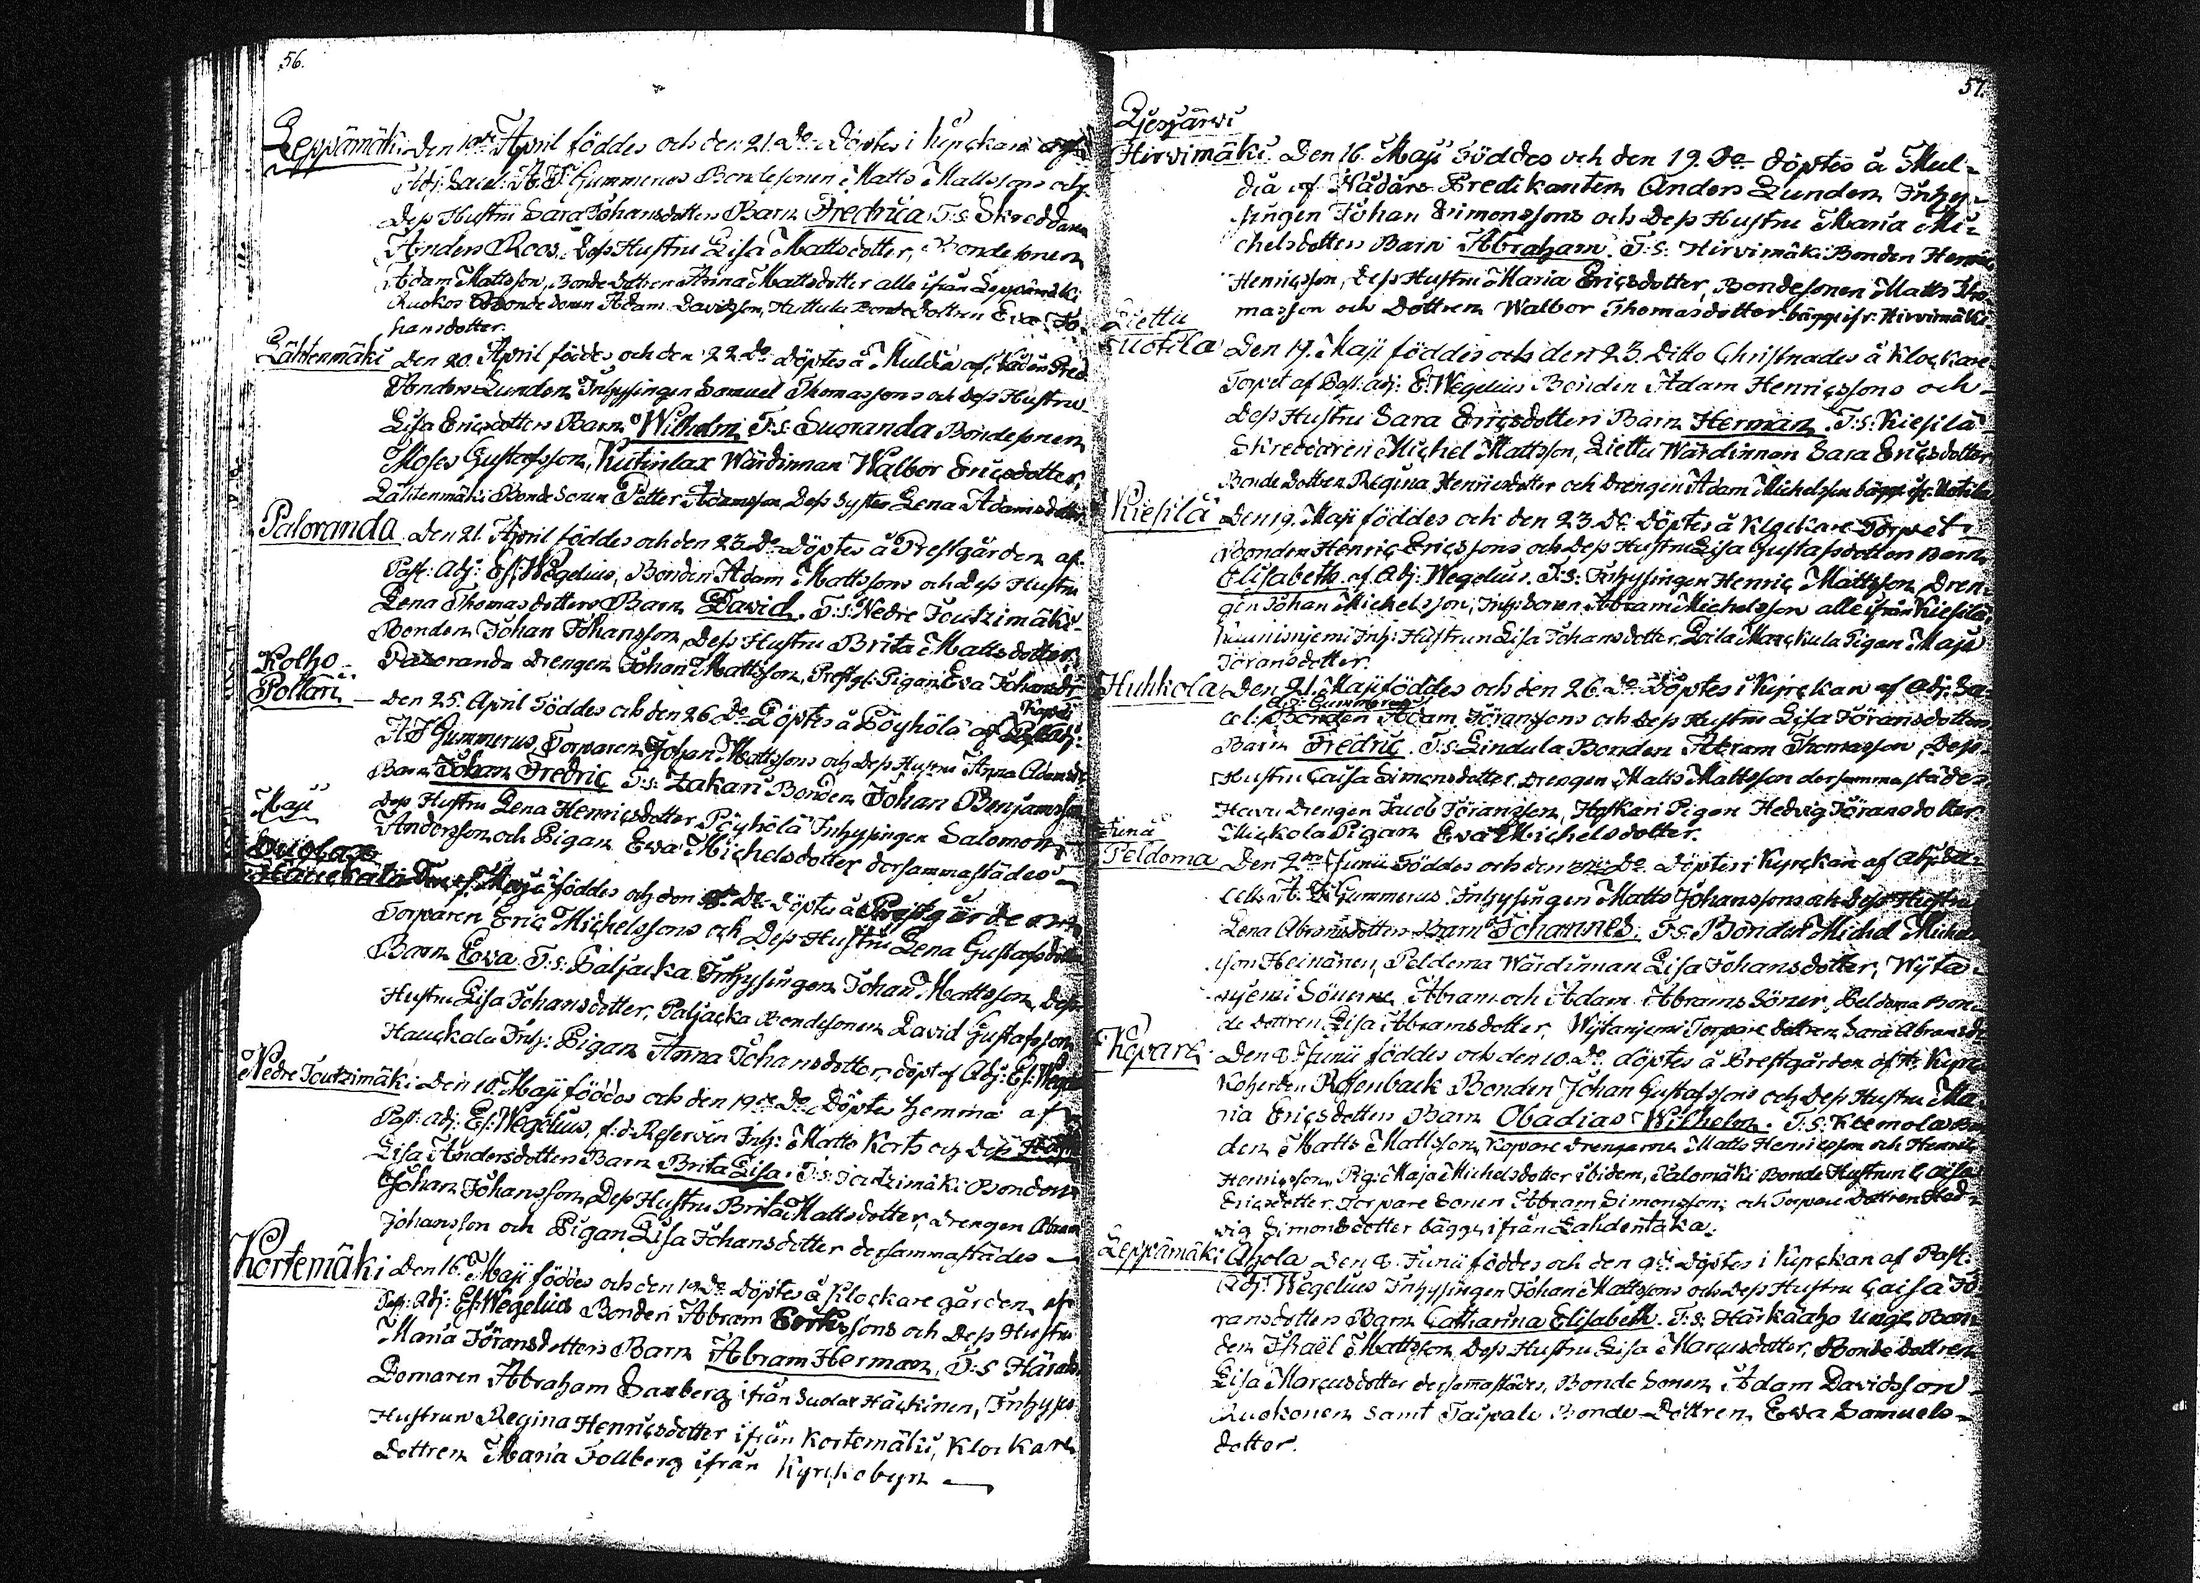 56.
Leppämäki. Den 10de April föddes och den 21. Do Döptes i Kyrckan af
Adj: Sacel: A F Gummerus Bondesonen Matts Mattsons och
Dess Hustru Sara Johansdotters Barn Fredrica, T: s: Skreddaren
Anders Roos, Dess Hustru Lisa Mattsdotter, Bondesonen
Adam Mattsson, Bonde Dottren Anna Mattsdotter alle ifrån Leppämäki
Ruokos Bonde Sonen Adam Davidsson, Huttula Bonde Dottren Eva Jo-
hansdotter.
Lähtenmäki Den 20. April föddes och den 22. Do Döptes å Muldia af Nådårs Pred.
Anders Lundén, Inhysingen Samuel Thomassons och Dess Hustru
Lisa Ericsdotters Barn Wilhelm, T: s: Suoranda Bondesonen
Moses Gustafsson, Kutinlax Wärdinnan Walbor Ericsdotter,
Lähtenmäki Bonde Sonen Petter Adamsson Dess Syster Lena Adamsdotter
Paloranda Den 21. April föddes och den 23. Do Döptes å Prestgården af
Past: Adj: Es: Wegelius, Bonden Adam Mattssons och Dess Hustru
Lena Thomasdotters Barn David. T: s: Nedre Joutzimäki
Bonden Johan Johansson, Dess Hustru Brita Mattsdotter,
Paloranda Drengen Johan Mattsson, Prestg: Pigan Eva Johansdr
Kolho
Pollari — Den 25. April Föddes och den 26. Do Döptes å Pöyhölä af Kapel: Adj:
A F Gummerus, Torparen Johan Mattssons och Dess Hustru Anna Adamsdr
Barn Johan Fredric T: s: Zakari Bonden Johan Benjamsson
Dess Hustru Lena Henricsdotter, Pöyhölä Inhysingen Salomon
Andersson och Pigan Eva Michelsdotter dersammastädes —
Maji
Suolax
Hauckala Den Maji föddes och den Do Döptes å Prestgården
Torparen Eric Michelssons och Dess Hustru Lena Gustafsdotters
Barn Eva. T: s: Paljacka Inhysingen Johan Mattsson, Dess
Hustru Lisa Johansdotter, Paljacka Bondesonen David Gustafsson
Hauckala Inh: Pigan Anna Johansdotter, döpt af Adj: Es: Wegelius
Nedre Joutzimäki: Den 10. Maji föddes och den 19de Do Döptes hemma af
Past: Adj: Es: Wegelius, f: d: Reserven Inh: Matts Korts och Dess Hustru
Lisa Andersdotters Barn Brita Lisa. T: s: Joutzimäki Bonden
Johan Johansson, Dess Hustru Brita Mattsdotter, Drengen Abram
Johansson och Pigan Lisa Johansdotter dersammastädes —
Kortemäki Den 16. Maji föddes och den 19. Do Döptes å Klockaregården af
Past: Adj: Es: Wegelius Bonden Abram Erikssons och Dess Hustru
Maria Jöransdotters Barn Abram Herman, T: s Härads
Domaren Abraham Saxberg ifrån Suolax Häckinen, Inhyses
Hustrun Regina Henricsdotter ifrån Kortemäki, Klockare
Dottren Maria Follberg ifrån Kyrckobyn —
57.
Pjesjärwi
Hirvimäki. Den 16. Maji Föddes och den 19. Do döptes å Mul-
dia af Nådårs Predikanten Anders Lundén Inhy-
singen Johan Simonssons och Dess Hustru Maria Mi-
chelsdotters Barn Abraham. T: s: Hirvimäki Bonden Henric
Henricsson, Dess Hustru Maria Ericsdotter, Bondesonen Matts Tho-
masson och Dottren Walbor Thomasdotter bägge ifr: Hirvimäki
Liettu
Suotila Den 17. Maji föddes och den 23. Ditto Christnades å Klockare
Torpet af Past: adj: E: Wegelius Bonden Adam Henricssons och
Dess Hustru Sara Ericsdotters Barn Herman. T: s: Kiesilä
Skreddaren Michel Mattsson, Liettu Wärdinnan Sara Ericsdotter
Bonde Dottren Regina Henricsdotter och Drengen Adam Michelsson bägge ifr.
Kiesilä Den 19. Maji föddes och den 23. Do Döptes å Klockare Torpet
Bonden Henric Ericssons och Dess Hustru Lisa Gustafsdotters Barn
Elisabeth af Adj: Wegelius. T: s: Inhysingen Henric Mattsson, Dren-
gen Johan Michelsson, Inh: Sonen Abram Michelsson alle ifrån Kiesilä,
Inh: Hustrun Lisa Johansdotter, Pigan Maja
Jöransdotter.
Huhkola Den 21. Maji föddes och den 26. Do Döptes i Kyrckan af Adj: Sa-
cel: A: F: Gummerus Bonden Adam Jöranssons och Dess Hustru Lisa Jöransdotters
Barn Fredric. T: s: Lindula Bonden Abram Thomasson, Dess
Hustru Caisa Simonsdotter, Drengen Matts Mattsson dersammastädes
Havu Drengen Jacob Jöransson, Hoskari Pigan Hedvig Jöransdotter
Mickola Pigan Eva Michelsdotter.
Junii
Peldoma Den 2dre Junii Föddes och den Do Döptes i Kyrckan af Adj: Sa-
cell: A: F: Gummerus. Inhysingen Matts Johanssons och Dess Hustru
Lena Abramsdotters Barn Johannes. T: s: Bonden Michel Michel-
sson Heinänen, Peldoma Wärdinnan Lisa Johansdotter, Wyta-
njemi Sönerne Abram och Adam Abrams Söner, Peldoma Bon-
de Dottren Lisa Abramsdotter, Wytanjemi Torpare Dottren Sara Abramsdr
Kopara Den 8. Junii föddes och den 10. Do döptes å Prestgården af Hr Kyrc-
koherden Rosenback Bonden Johan Gustafssons och Dess Hustru Ma-
ria Ericsdotters Barn Obadias Wilhelm. T: s: Keemola Bon-
den Matts Mattsson, Kopare Drengarne Matts Henricsson och Henric
Henricsson, Pig: Maja Michelsdotter ibidem, Salomäki Bonde Hustrun Caisa
Ericsdotter, Torpare Sonen Abram Simonsson, och Torpare Dottren Hed-
vig Simonsdotter bägge ifrån Lahdentaka.
Leppämäki Ahola Den 8. Junii föddes och den 9de Döptes i Kyrckan af Past:
Adj: Wegelius Inhysingen Johan Mattssons och Dess Hustru Caisa Jö-
ransdotters Barn Catharina Elisabeth. T: s: Härkäaho Unge Bon-
den Israël Mattsson, Dess Hustru Lisa Marcusdotter, Bonde Dottren
Lisa Marcusdotter dersammastädes, Bonde Sonen Adam Davidsson
Ruokonen samt Taipale Bonde Dottren Eva Samuels-
dotter.